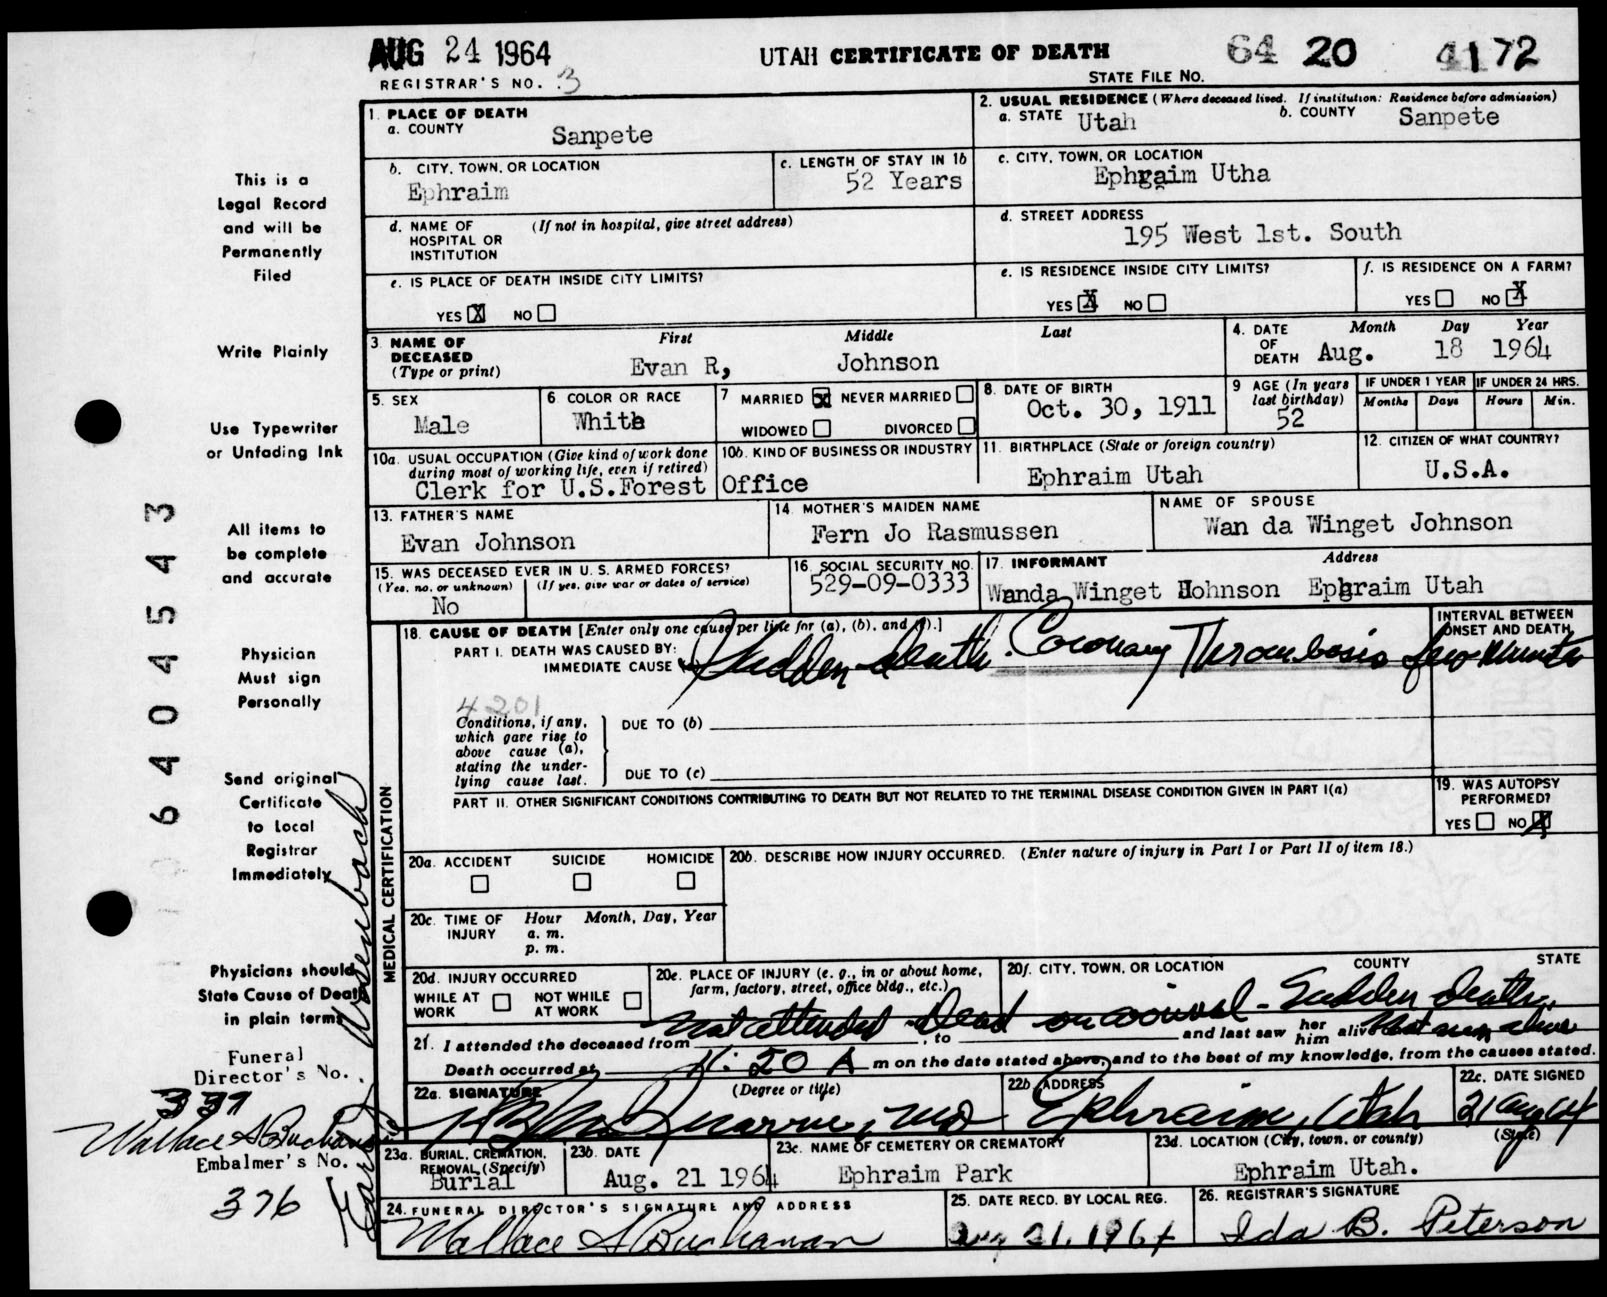 AUG 24 1964
UTAH CERTIFICATE OF DEATH
64 20 4172
REGISTRAR'S NO. 3
STATE FILE NO.
1. PLACE OF DEATH
a. COUNTY
Sanpete
2. USUAL RESIDENCE (Where deceased lived. If institution: Residence before admission)
a. STATE Utah
b. COUNTY Sanpete
b. CITY, TOWN, OR LOCATION
Ephraim
c. LENGTH OF STAY IN 1b
52 Years
c. CITY, TOWN, OR LOCATION
Ephraim Utha
d. NAME OF HOSPITAL OR INSTITUTION
(If not in hospital, give street address)
d. STREET ADDRESS
195 West 1st. South
e. IS PLACE OF DEATH INSIDE CITY LIMITS?
YES X NO
e. IS RESIDENCE INSIDE CITY LIMITS?
YES X NO
f. IS RESIDENCE ON A FARM?
YES NO X
3. NAME OF DECEASED (Type or print)
First Middle Last
Evan R, Johnson
4. DATE OF DEATH
Month Day Year
Aug. 18 1964
5. SEX
Male
6 COLOR OR RACE
White
7 MARRIED X NEVER MARRIED
WIDOWED DIVORCED
8. DATE OF BIRTH
Oct. 30, 1911
9 AGE (In years last birthday)
52
IF UNDER 1 YEAR
Months Days
IF UNDER 24 HRS.
Hours Min.
10a. USUAL OCCUPATION (Give kind of work done during most of working life, even if retired)
Clerk for U.S.Forest
10b. KIND OF BUSINESS OR INDUSTRY
Office
11. BIRTHPLACE (State or foreign country)
Ephraim Utah
12. CITIZEN OF WHAT COUNTRY?
U.S.A.
13. FATHER'S NAME
Evan Johnson
14. MOTHER'S MAIDEN NAME
Fern Jo Rasmussen
NAME OF SPOUSE
Wan da Winget Johnson
15. WAS DECEASED EVER IN U. S. ARMED FORCES?
(Yes, no, or unknown) (If yes, give war or dates of service)
No
16. SOCIAL SECURITY NO.
529-09-0333
17. INFORMANT Address
Wanda Winget Johnson Ephraim Utah
18. CAUSE OF DEATH [Enter only one cause per line for (a), (b), and (c).]
INTERVAL BETWEEN ONSET AND DEATH
PART I. DEATH WAS CAUSED BY:
IMMEDIATE CAUSE (a) Sudden death. Coronary Thrombosis few Minutes
4201
Conditions, if any, which gave rise to above cause (a), stating the underlying cause last.
DUE TO (b)
DUE TO (c)
PART II. OTHER SIGNIFICANT CONDITIONS CONTRIBUTING TO DEATH BUT NOT RELATED TO THE TERMINAL DISEASE CONDITION GIVEN IN PART I(a)
19. WAS AUTOPSY PERFORMED?
YES NO X
MEDICAL CERTIFICATION
20a. ACCIDENT SUICIDE HOMICIDE
20b. DESCRIBE HOW INJURY OCCURRED. (Enter nature of injury in Part I or Part II of item 18.)
20c. TIME OF INJURY
Hour Month, Day, Year
a. m.
p. m.
20d. INJURY OCCURRED
WHILE AT WORK NOT WHILE AT WORK
20e. PLACE OF INJURY (e. g., in or about home, farm, factory, street, office bldg., etc.)
20f. CITY, TOWN, OR LOCATION COUNTY STATE
not attended - Dead on arrival - Sudden death,
21. I attended the deceased from , to and last saw her him alive
Death occurred at 11:20 A m on the date stated above, and to the best of my knowledge, from the causes stated.
22a. SIGNATURE (Degree or title)
MD
22b. ADDRESS
Ephraim, Utah
22c. DATE SIGNED
21 Aug 64
23a. BURIAL, CREMATION, REMOVAL (Specify)
Burial
23b. DATE
Aug. 21 1964
23c. NAME OF CEMETERY OR CREMATORY
Ephraim Park
23d. LOCATION (City, town, or county) (State)
Ephraim Utah.
24. FUNERAL DIRECTOR'S SIGNATURE AND ADDRESS
Wallace S Buchanan
25. DATE RECD. BY LOCAL REG.
Aug 21, 1964
26. REGISTRAR'S SIGNATURE
Ida B. Peterson
This is a
Legal Record
and will be
Permanently
Filed
Write Plainly
Use Typewriter
or Unfading Ink
All items to
be complete
and accurate
Physician
Must sign
Personally
Send original
Certificate
to Local
Registrar
Immediately
Physicians should
State Cause of Death
in plain terms
Funeral
Director's No.
337
Wallace S Buchanan
Embalmer's No.
376
6404543